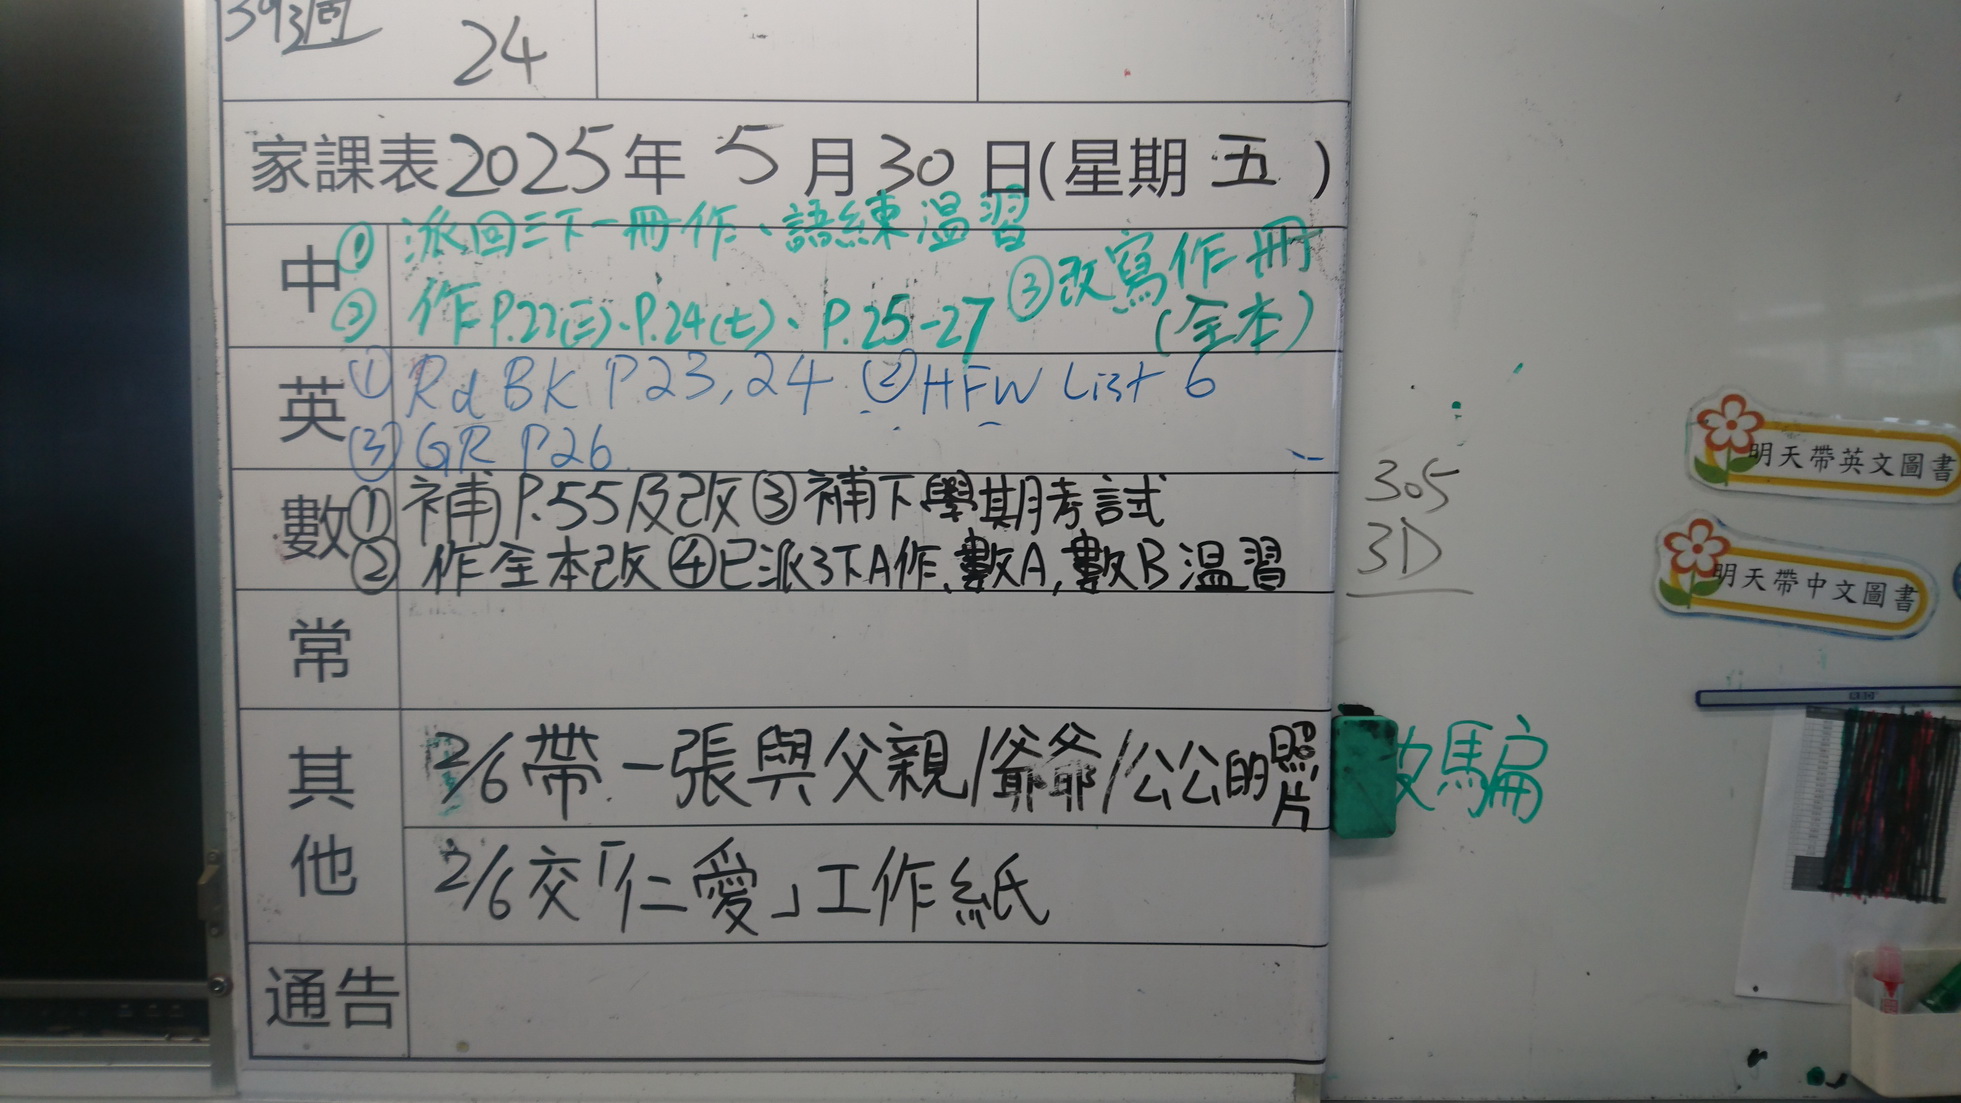 24
家課表2025年 5月30日(星期 五 )
中
① 派回三下一冊作、語練溫習
② 作P.22(三)、P.24(七)、P.25-27 ③改寫作冊
(全本)
英
① Rd BK P23,24 ② HFW List 6
③ GR P26
數
① 補P.55及改 ③補下學期考試
② 作全本改 ④已派3下A作、數A,數B溫習
常
其他
2/6帶一張與父親/爺爺/公公的照片
2/6交「仁愛」工作紙
通告
305
3D
騙
明天帶英文圖書
明天帶中文圖書